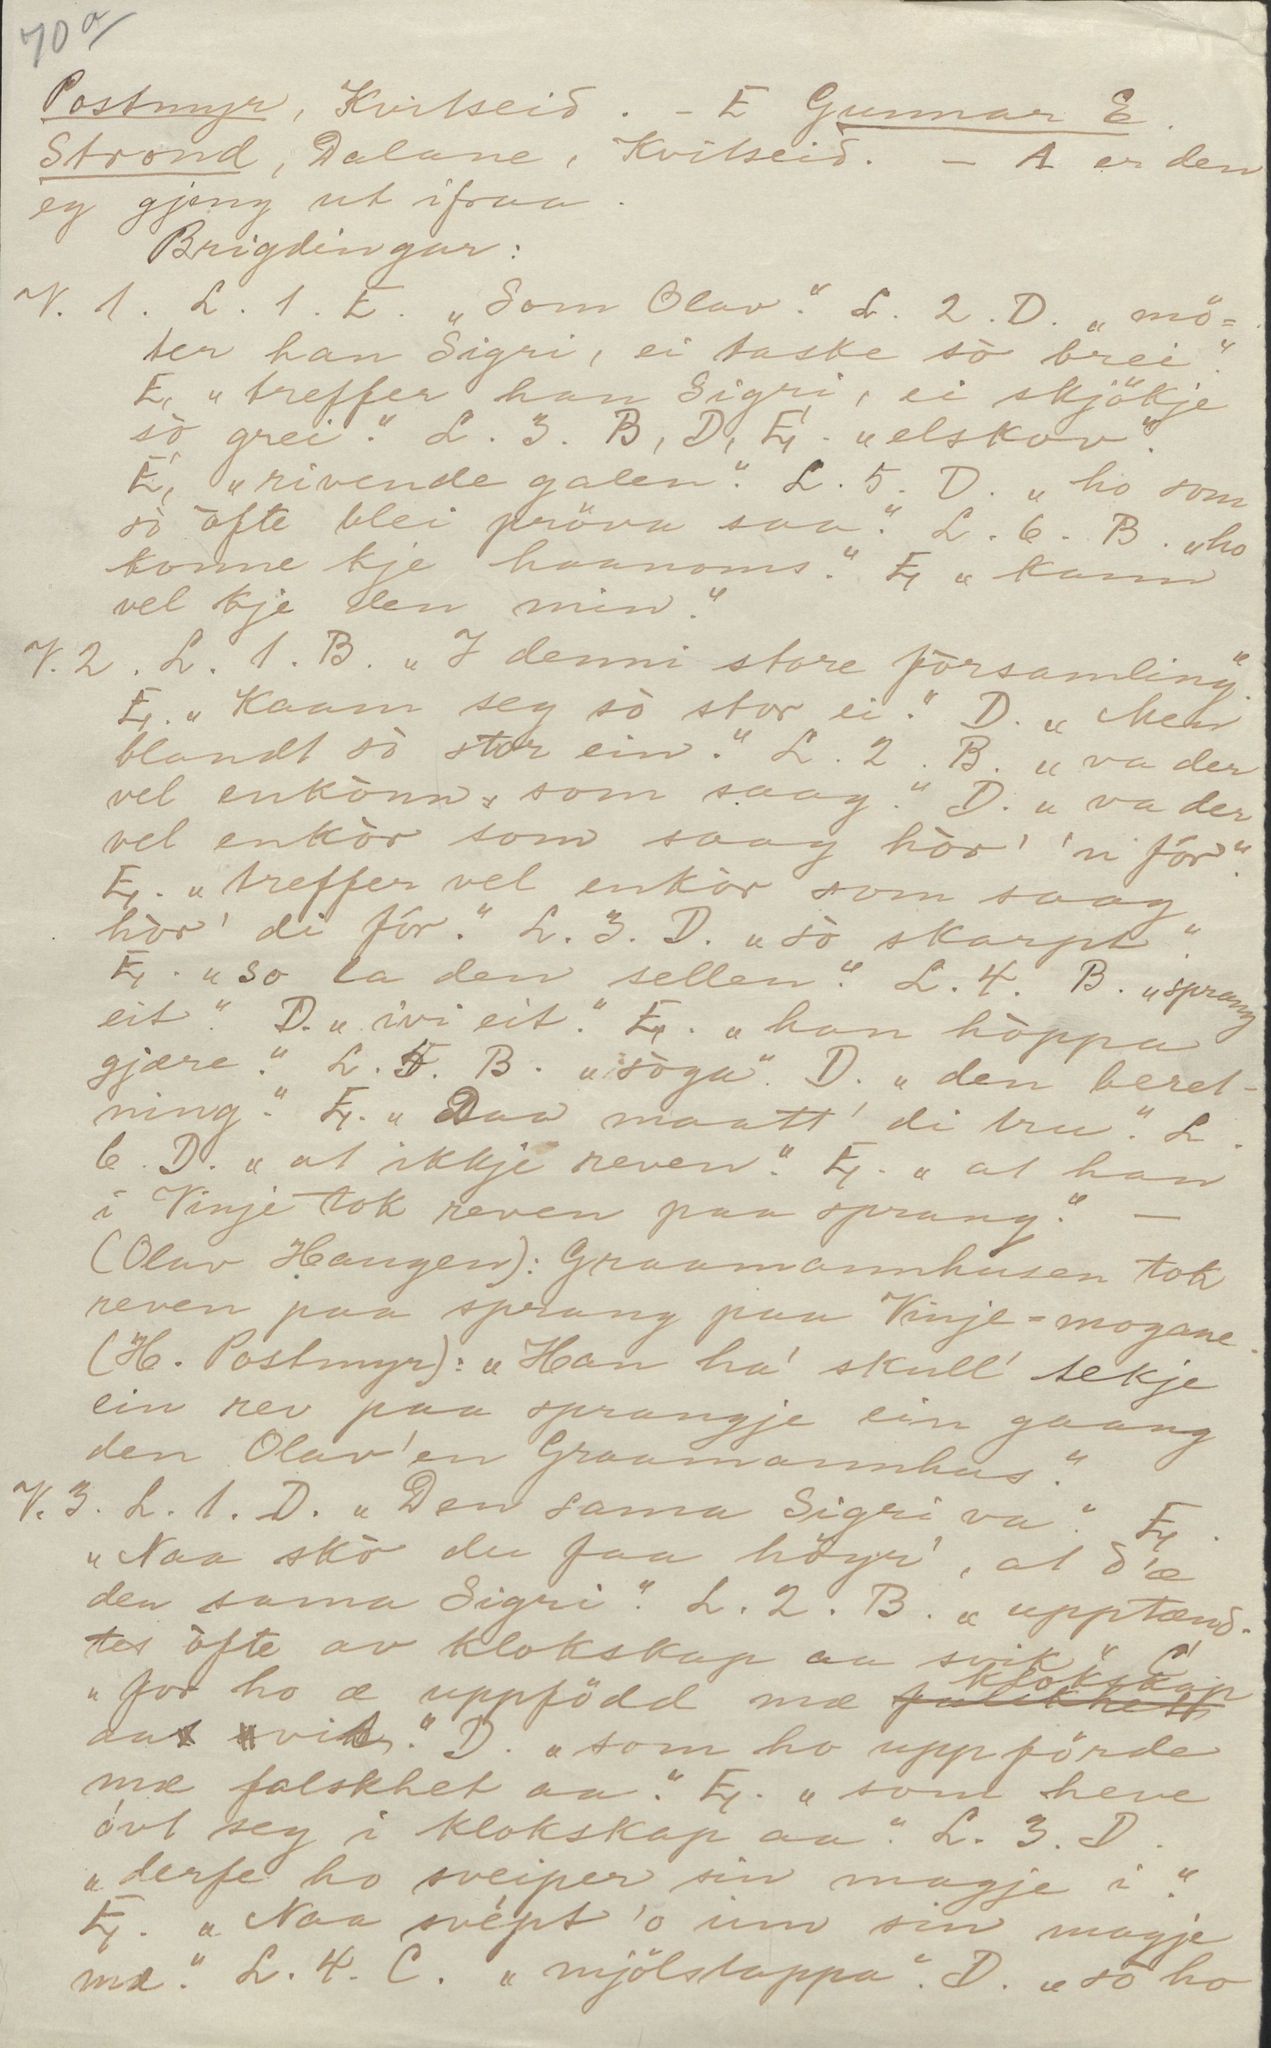 70 a
Postmyr, Kvitseid. – E Gunnar E.
Strond, Dalane, Kvitseid. – A er den
eg gjeng ut ifraa.
Brigdingar:
V. 1. L. 1. E. „Som Olav.“ L. 2. D. „mö=
ter han Sigri, ei taske sò brei.“
E, „treffer han Sigri, ei skjökje
sò grei.“ L. 3. B, D, E. „elskov“.
E, „rivende galen.“ L. 5. D. „ho som
sò òfte blei pröva saa.“ L. 6. B. „ho
konne kje haanoms.“ E, „kann
vel kje den min.“
V. 2. L. 1. B. „I denni store fòrsamling“.
E. „Kaam seg sò stor ei.“ D. „Men
blandt sò stor ein.“ L. 2. B. „va der
vel enkònn som saag.“ D. „va der
vel enkòr som saag hòr' 'n fór“.
E. „treffer vel enkòr som saag
hòr' di fór.“ L. 3. D. „sò skarpt“
E. „so la den sellen.“ L. 4. B. „sprang
eit.“ D. „ivi eit.“ E. „han hòppa
gjære.“ L. 5. B. „sòga“. D. „den beret-
ning.“ E. „Daa maatt' di tru.“ L.
6. D. „at ikkje reven.“ E. „at han
i Vinje tok reven paa sprang.“ –
(Olav Haugen): Graamannhusen tok
reven paa sprang paa Vinje=mogane.
(H. Postmyr): „Han ha' skull' tekje
ein rev paa sprangje ein gaang
den Olav'en Graamannhus.“
V. 3. L. 1. D. „Den sama Sigri va.“ E.
„Naa skò du faa höyr', at d'æ
den sama Sigri.“ L. 2. B. „upptænd-
tes òfte av klokskap aa svik.“ C
„for ho æ uppfödd mæ falskhett klokskap
aa svik.“ D. „som ho uppförde
mæ falskhet aa.“ E. „som heve
óvt seg i klokskap aa.“ L. 3. D.
„derfe ho sveiper sin magje i.“
E. „Naa svépt 'o um sin magje
mæ.“ L. 4. C. „mjölstappa“. D. „sò ho